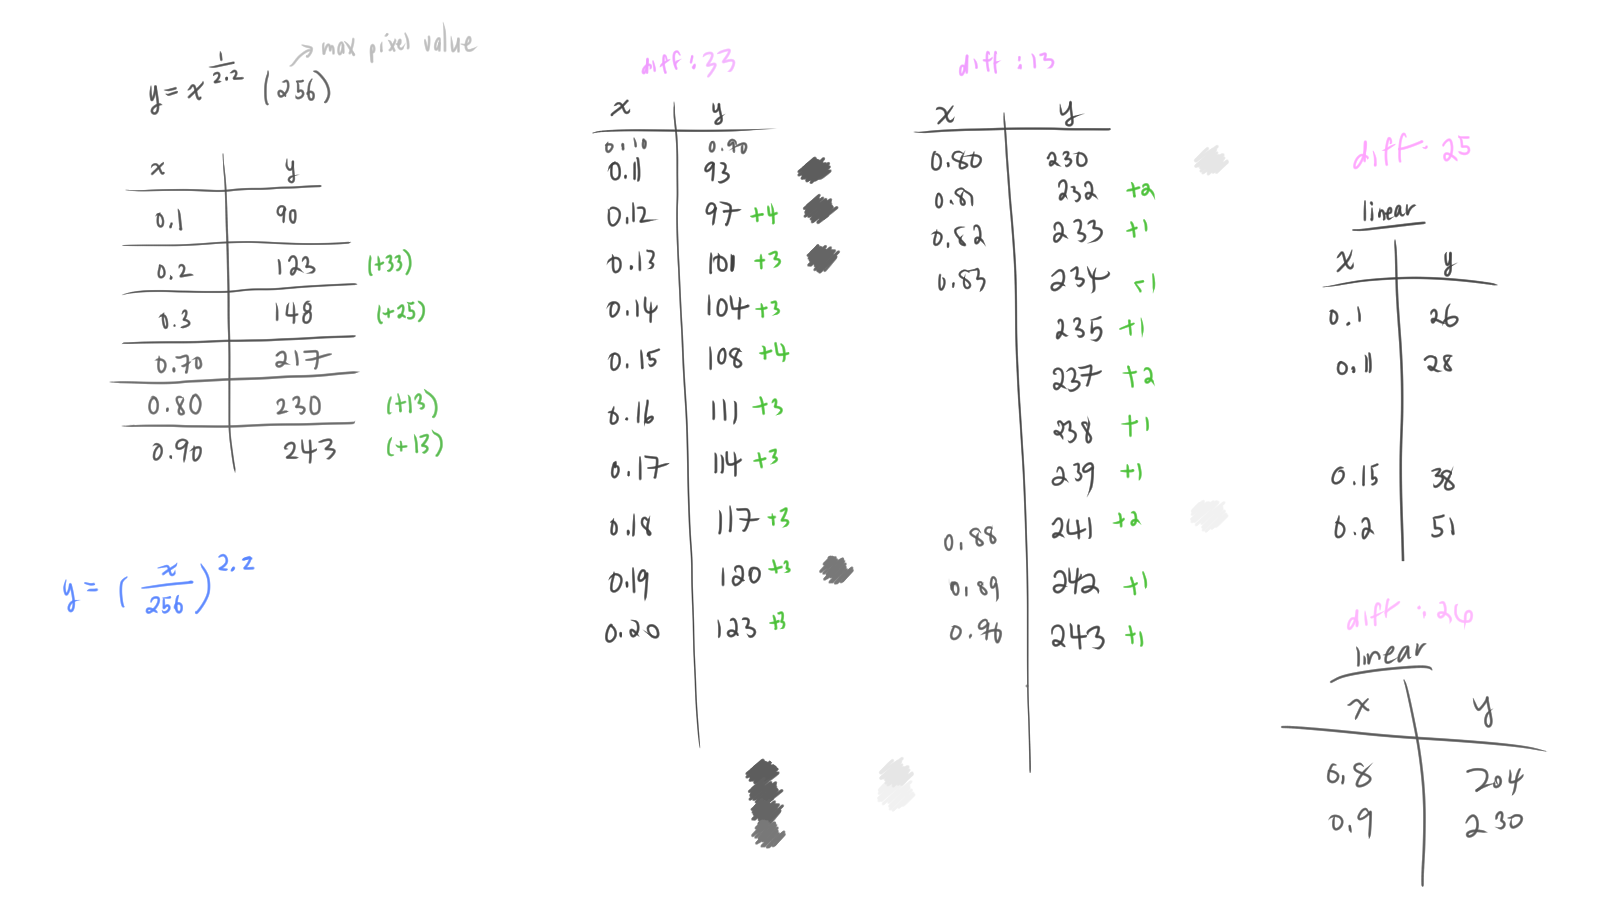 y = x^(1/2.2) (256) → max pixel value
x y
0.1 90
0.2 123 (+33)
0.3 148 (+25)
0.70 217
0.80 230 (+13)
0.90 243 (+13)
y = (x/256)^2.2
diff : 33
x y
0.10 0.90
0.11 93
0.12 97 +4
0.13 101 +3
0.14 104 +3
0.15 108 +4
0.16 111 +3
0.17 114 +3
0.18 117 +3
0.19 120 +3
0.20 123 +3
diff : 13
x y
0.80 230
0.81 232 +2
0.82 233 +1
0.83 234 +1
235 +1
237 +2
238 +1
239 +1
0.88 241 +2
0.89 242 +1
0.90 243 +1
diff: 25
linear
x y
0.1 26
0.11 28
0.15 38
0.2 51
diff : 26
linear
x y
0.8 204
0.9 230